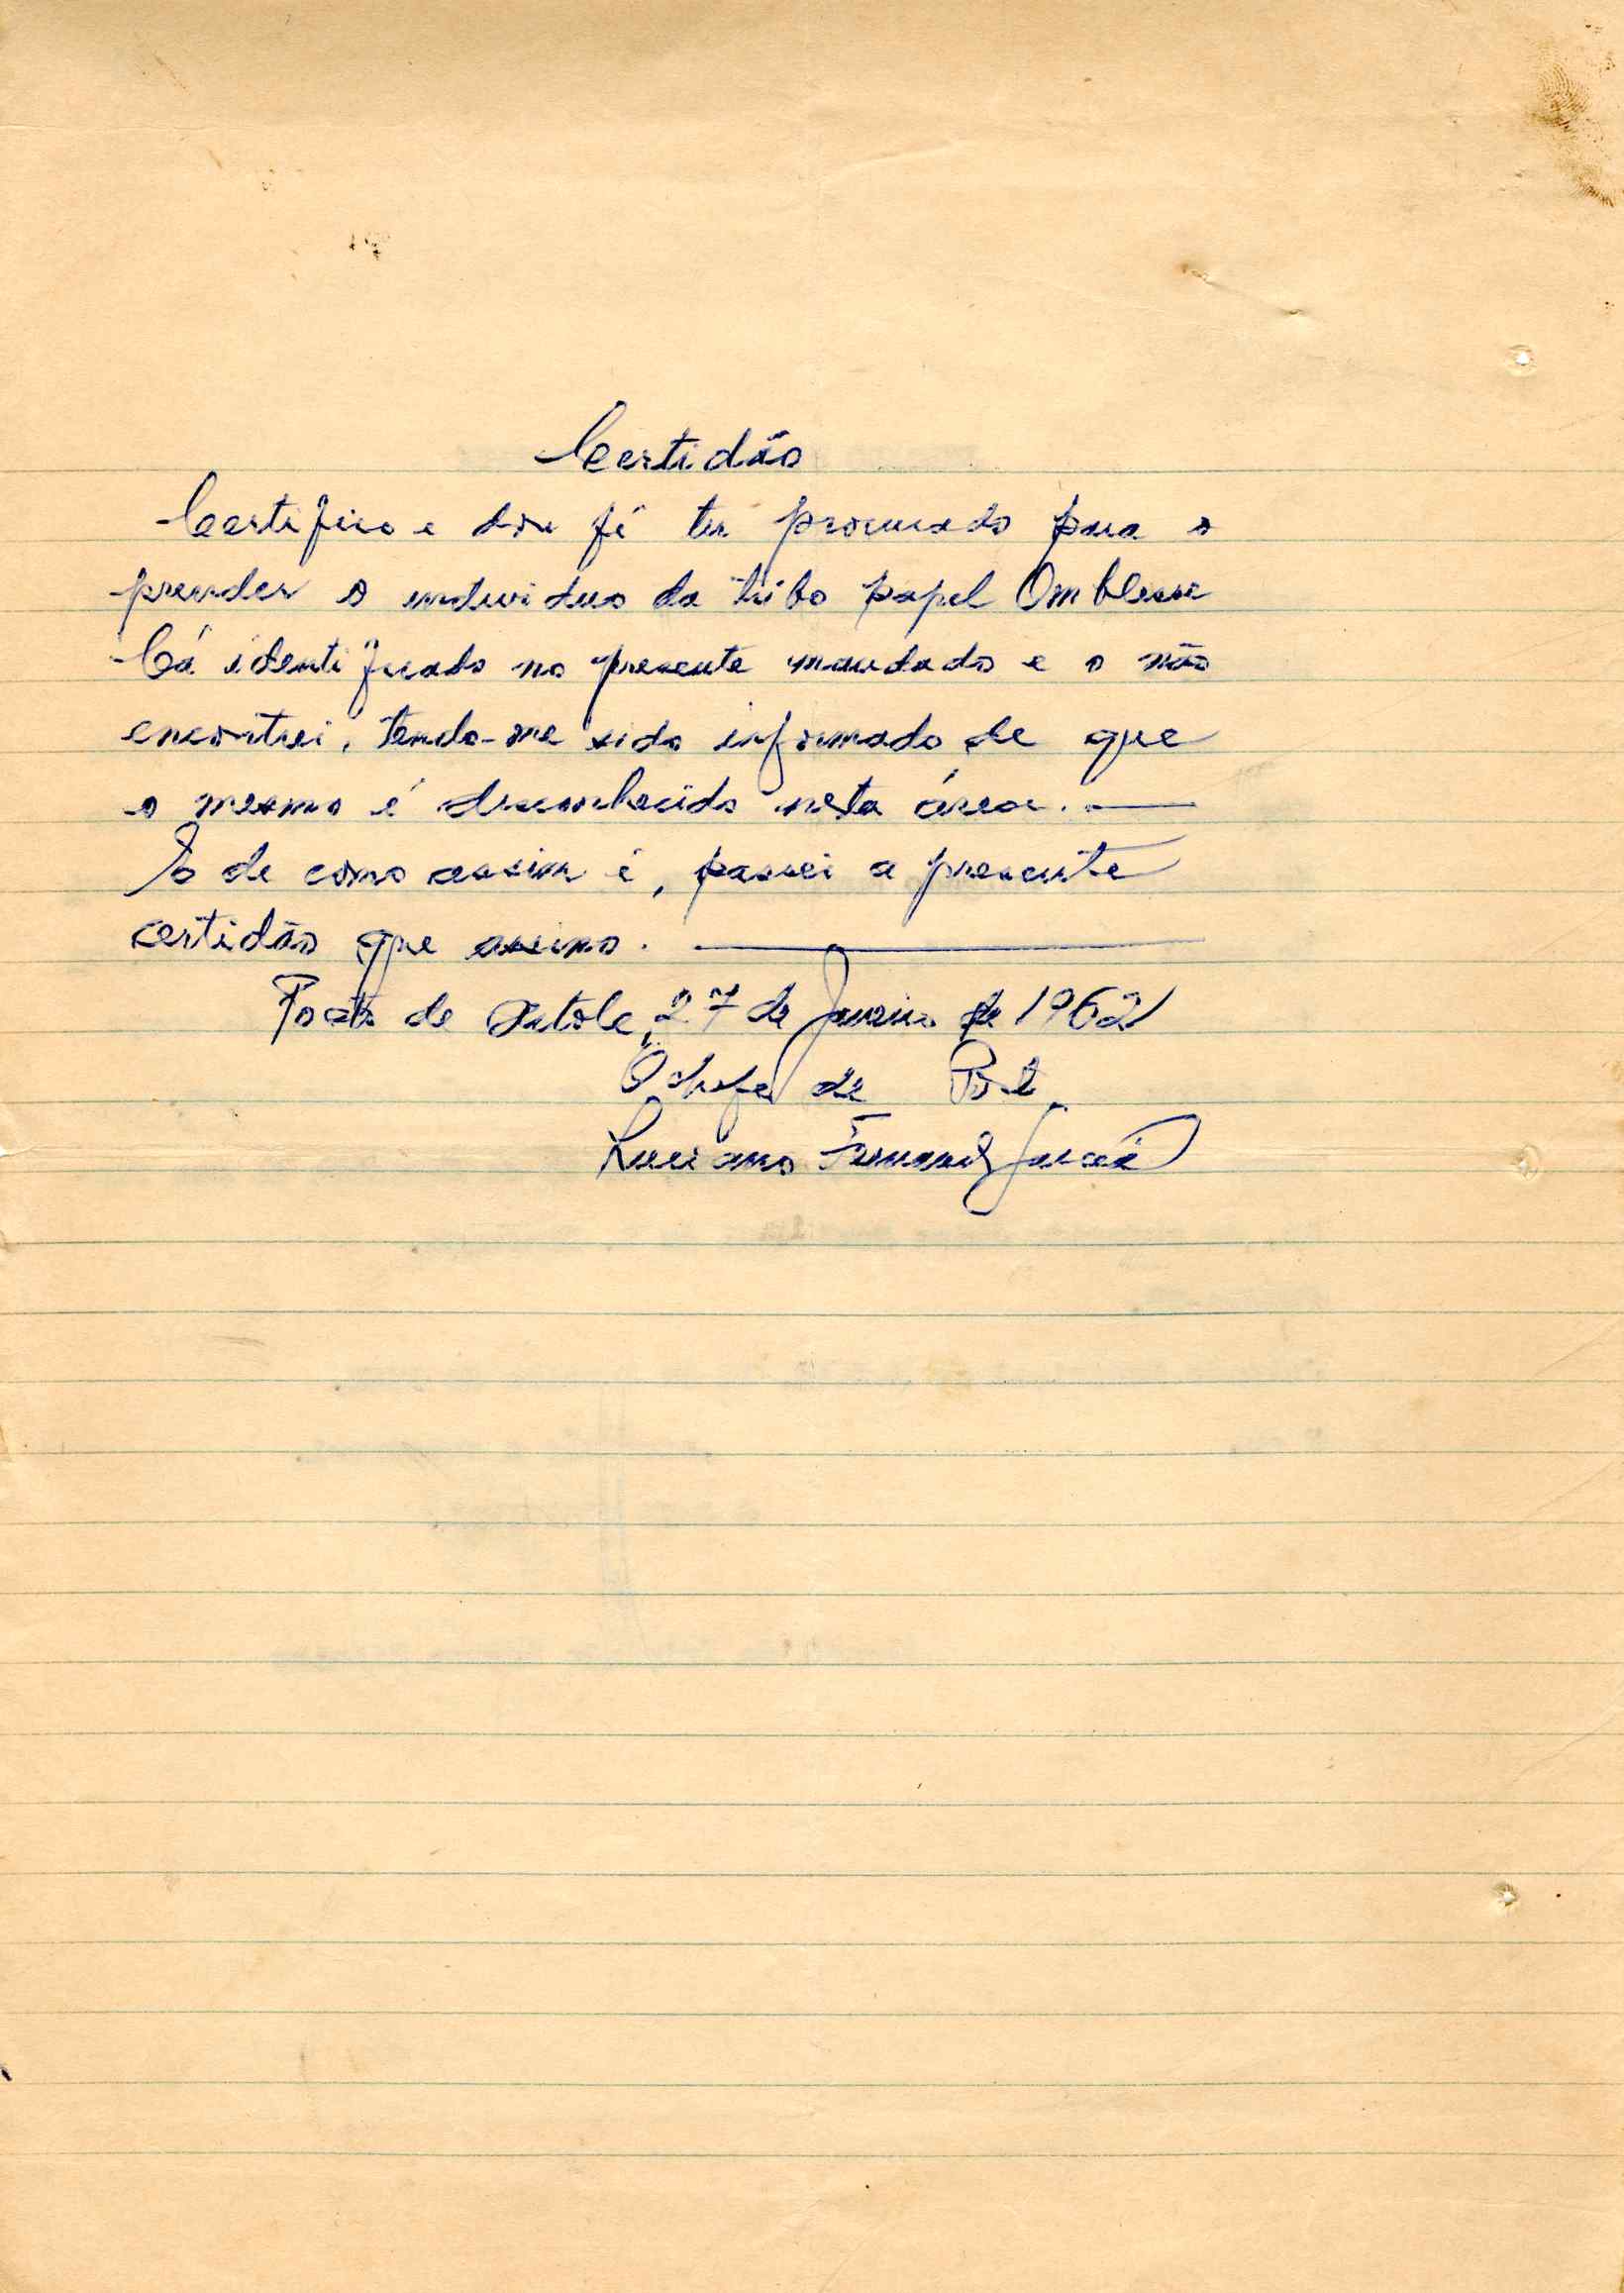 Certidão
Certifico e dou fé ter procurado para o
prender o individuo da tribo papel Omblesse
Cá identificado no presente mandado e o não
encontrei, tendo-me sido informado de que
o mesmo é desconhecido nesta área. —
E de como assim é, passei a presente
certidão que assino. —
Posto de Xitole, 27 de Janeiro de 1962
O chefe de Posto
Luciano Garcia